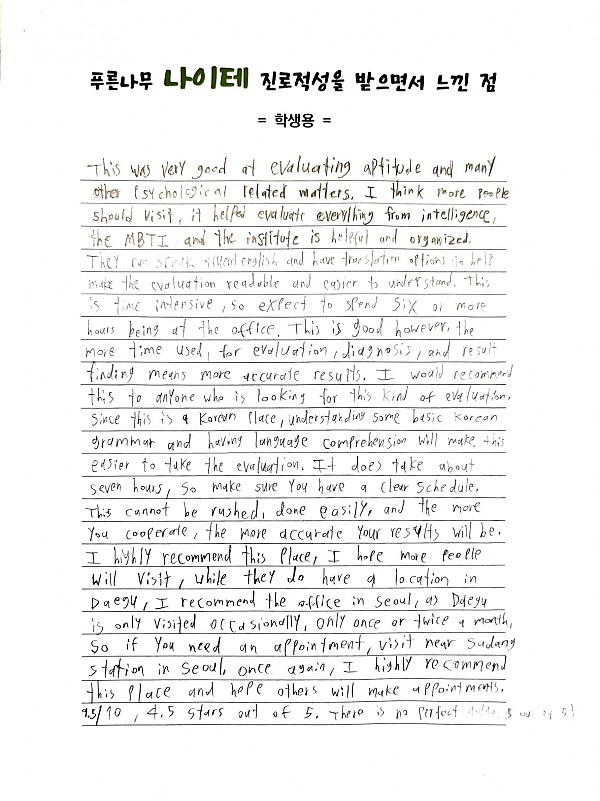 푸른나무 나이테 진로적성을 받으면서 느낀 점
= 학생용 =
This was very good at evaluating aptitude and many
other Psychological related matters. I think more people
should visit, it helped evaluate everything from intelligence,
the MBTI and the institute is helpful and organized.
They can speak english and have translation options to help
make the evaluation readable and easier to understand. This
is time intensive, so expect to spend six or more
hours being at the office. This is good however, the
more time used, for evaluation, diagnosis, and result
finding means more accurate results. I would recommend
this to anyone who is looking for this kind of evaluation.
Since this is a Korean Place, understanding some basic Korean
grammar and having language comprehension will make this
easier to take the evaluation. It does take about
seven hours, so make sure you have a clear schedule.
This cannot be rushed, done easily, and the more
you cooperate, the more accurate your results will be.
I highly recommend this place, I hope more people
will visit, while they do have a location in
Daegu, I recommend the office in Seoul, as Daegu
is only visited occasionally, only once or twice a month,
So if you need an appointment, visit near Sadang
station in Seoul, once again, I highly recommend
this place and hope others will make appointments.
9.5/10, 4.5 stars out of 5. There is no perfect 5 out of 5)